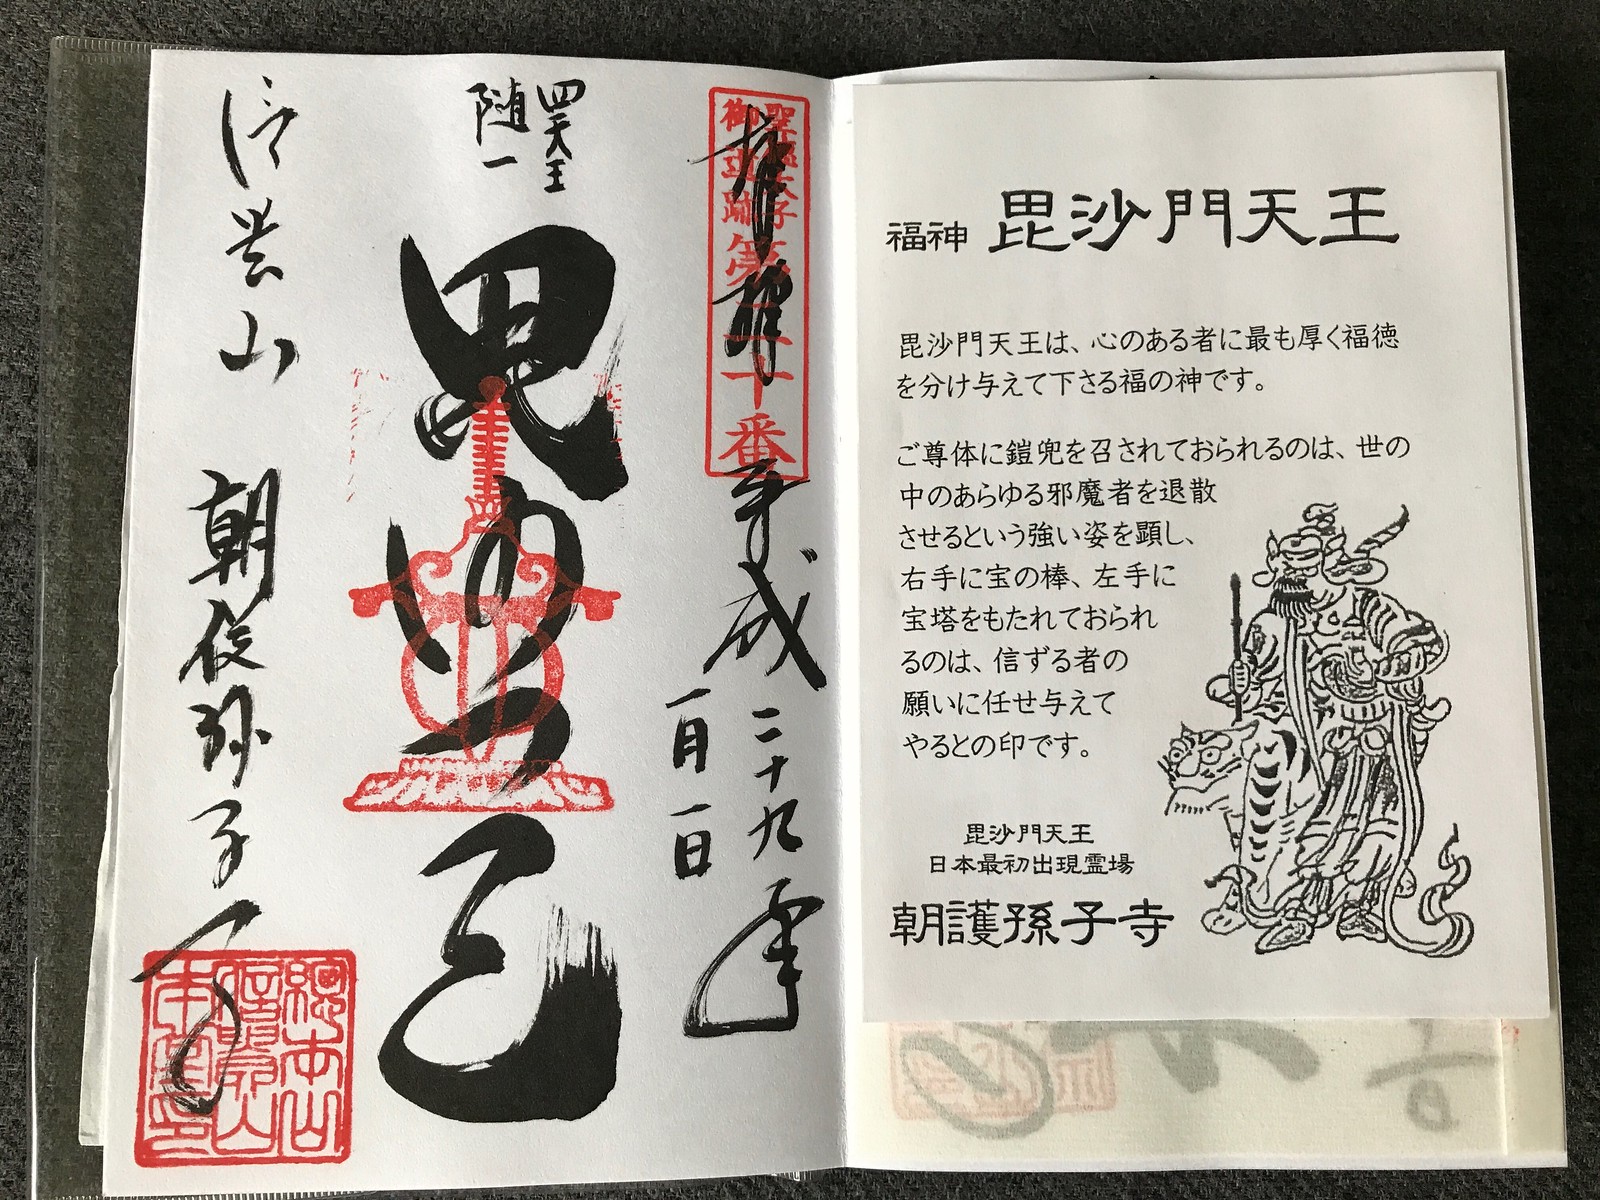 奉拝
聖徳太子
御遺跡
第二十番
平成二十九年
一月一日
四天王
随一
毘沙門天
信貴山
朝護孫子寺
福神 毘沙門天王
毘沙門天王は、心のある者に最も厚く福徳
を分け与えて下さる福の神です。
ご尊体に鎧兜を召されておられるのは、世の
中のあらゆる邪魔者を退散
させるという強い姿を顕し、
右手に宝の棒、左手に
宝塔をもたれておられ
るのは、信ずる者の
願いに任せ与えて
やるとの印です。
毘沙門天王
日本最初出現霊場
朝護孫子寺